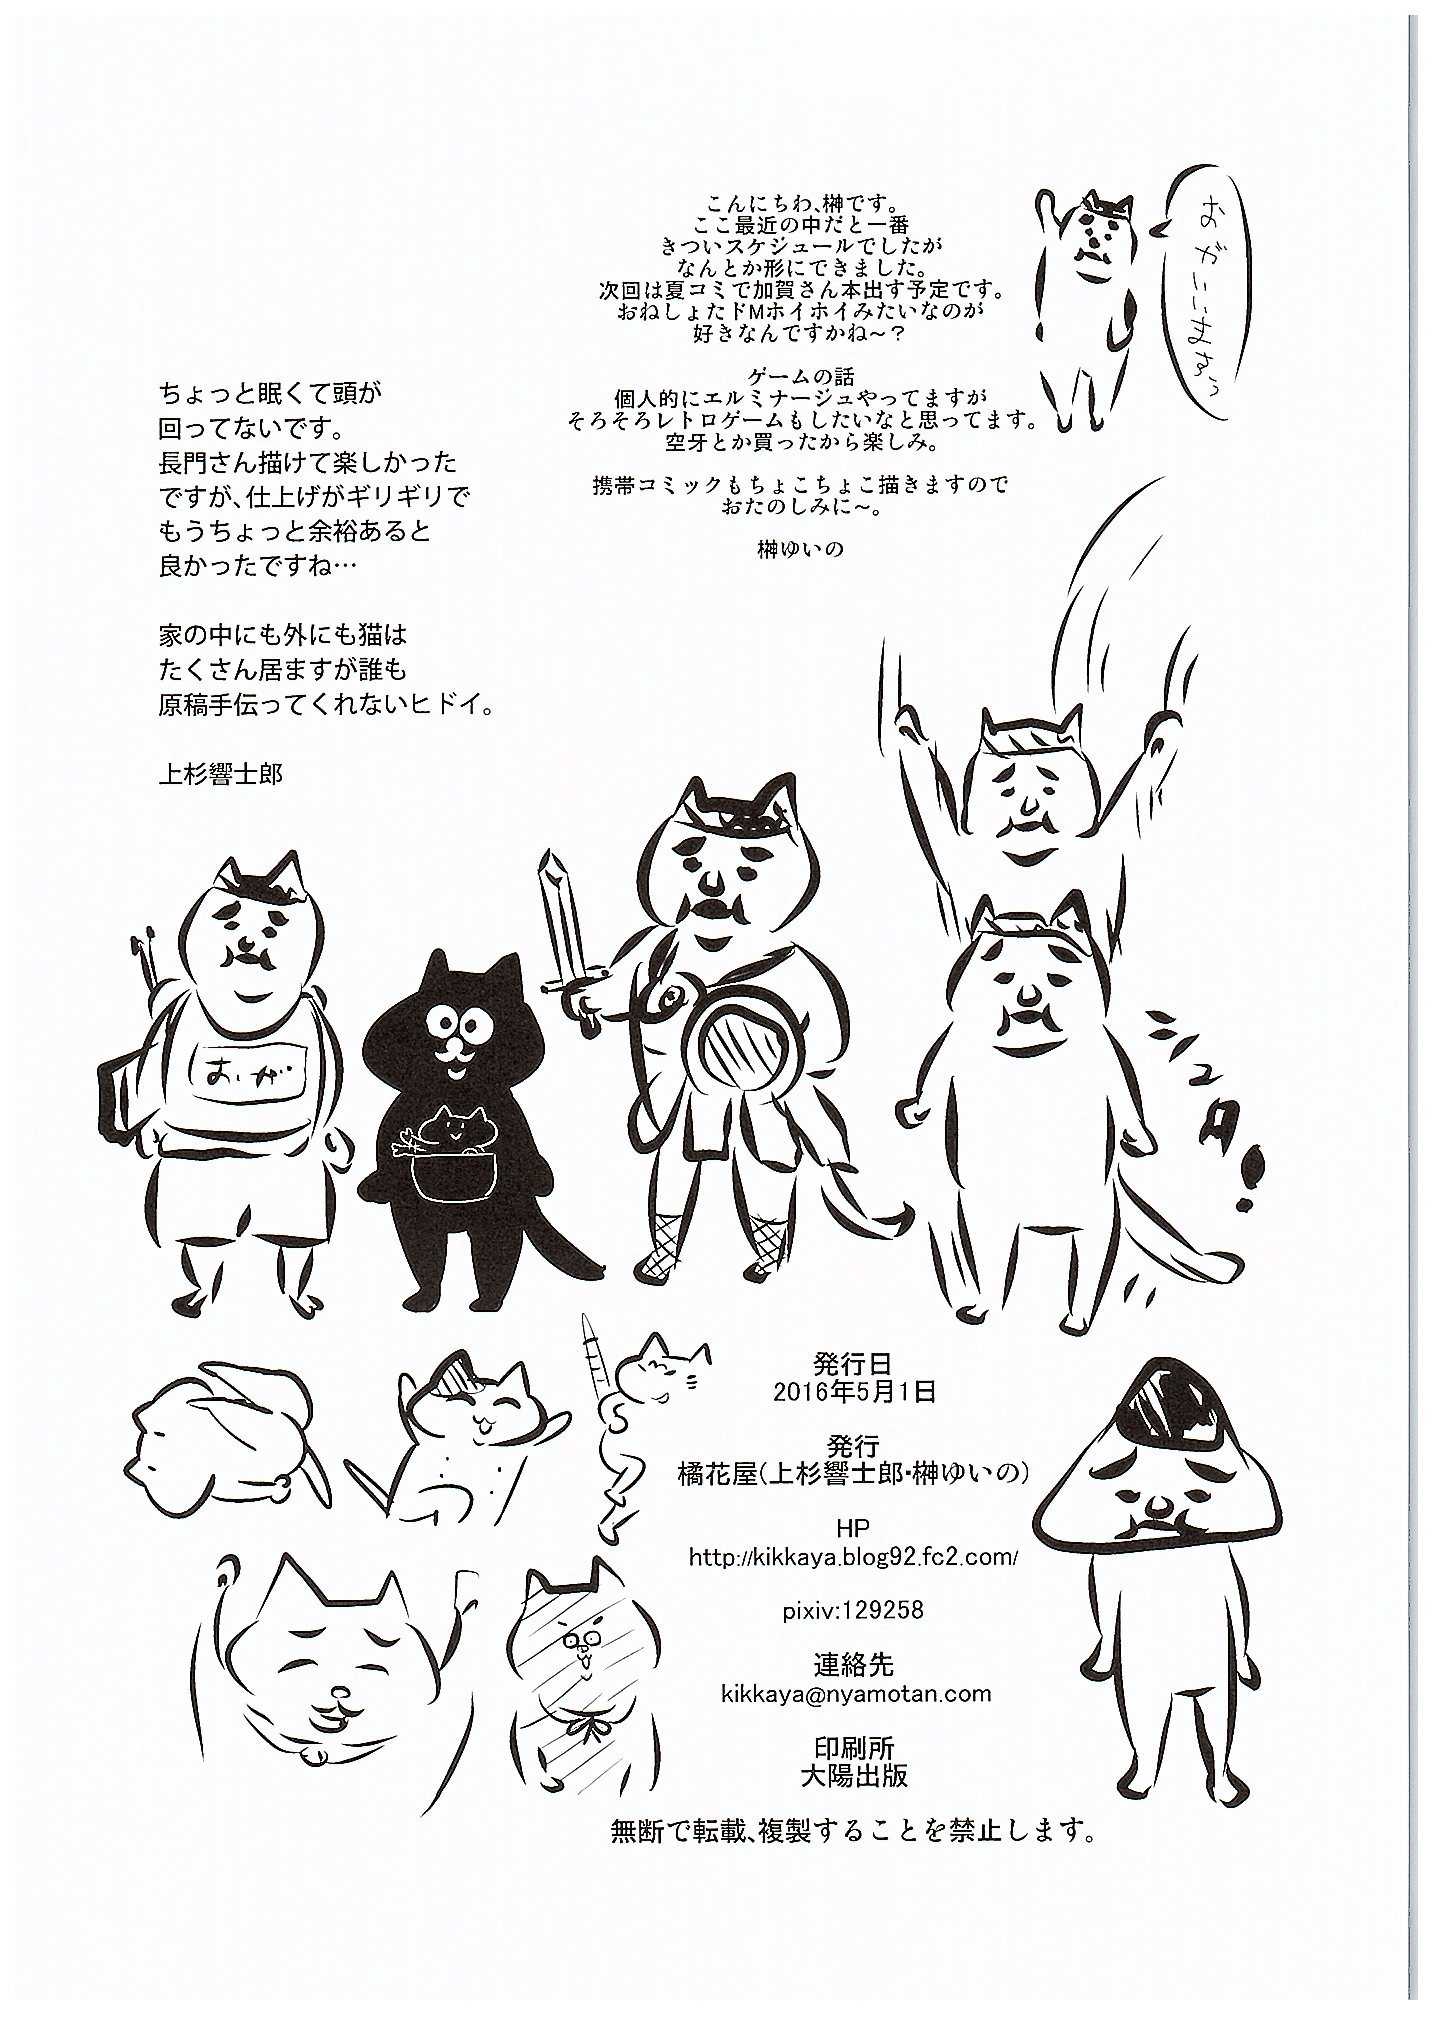 こんにちわ、榊です。
ここ最近の中だと一番
きついスケジュールでしたが
なんとか形にできました。
次回は夏コミで加賀さん本出す予定です。
おねしょたドMホイホイみたいなのが
好きなんですかね～？
ゲームの話
個人的にエルミナージュやってますが
そろそろレトロゲームもしたいなと思ってます。
空牙とか買ったから楽しみ。
携帯コミックもちょこちょこ描きますので
おたのしみに～。
榊ゆいの
おがいいますぅ
ちょっと眠くて頭が
回ってないです。
長門さん描けて楽しかった
ですが、仕上げがギリギリで
もうちょっと余裕あると
良かったですね…
家の中にも外にも猫は
たくさん居ますが誰も
原稿手伝ってくれないヒドイ。
上杉響士郎
おが
シュタ！
発行日
2016年5月1日
発行
橘花屋(上杉響士郎・榊ゆいの)
HP
http://kikkaya.blog92.fc2.com/
pixiv:129258
連絡先
kikkaya@nyamotan.com
印刷所
大陽出版
無断で転載、複製することを禁止します。